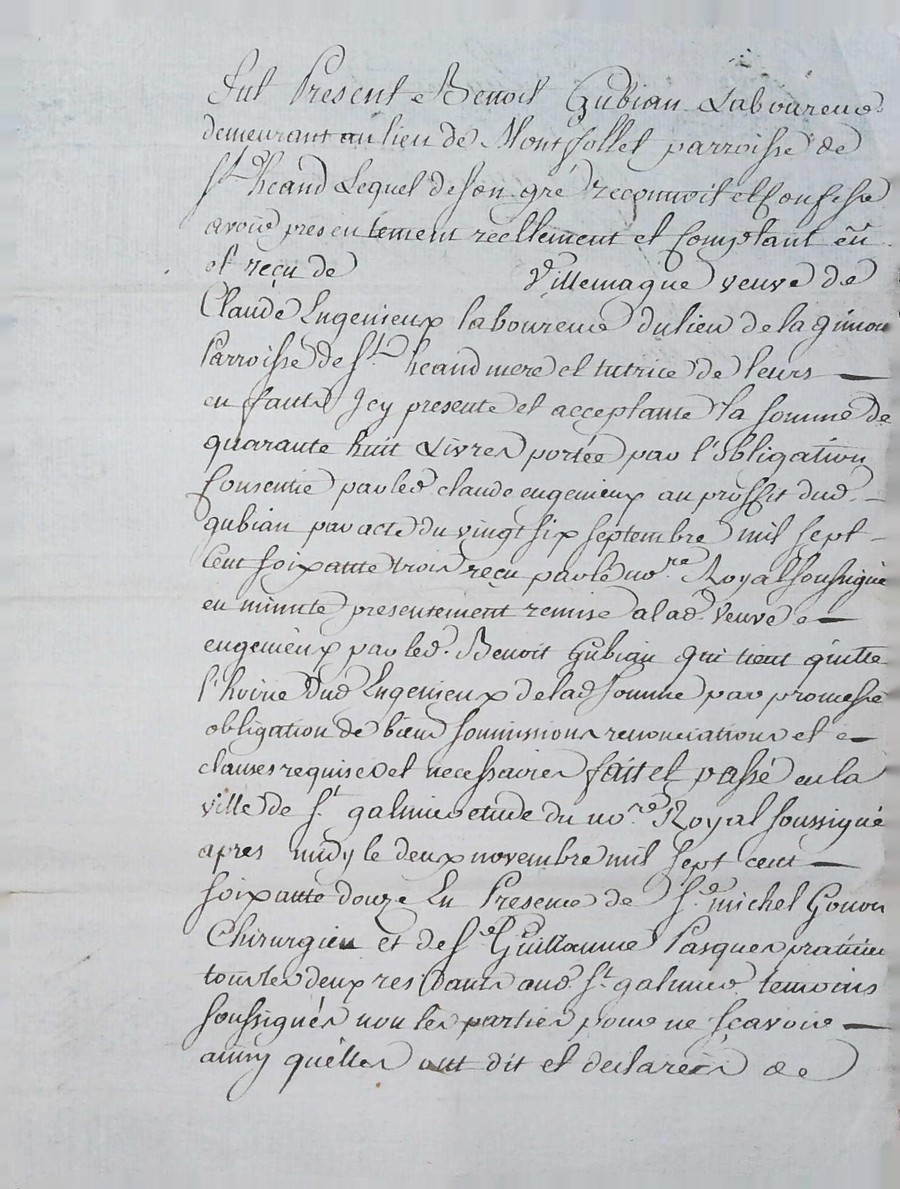 Fut Present Benoit Gubian Laboureur
demeurant au lieu de Montfollet parroisse de
St. heand Lequel de son gré reconnoit et confesse
avoir presentement reellement et comptant eû
et reçu de Villemague veuve de
Claude Engenieux laboureur du lieu de la gimon
Parroisse de St. heand mere et tutrice de leurs
enfants Icy presente et acceptante la somme de
quarante huit Livres portée par l'obligation
Consentie par led claude engenieux au proffit dud.
gubian par acte du vingt six septembre mil sept
Cent soixante trois reçu par le no.re Royal soussigné
en minute presentement remise a lad. veuve
engenieux par led. Benoit Gubian qui tient quitte
l'hoirie dud Engenieux de lad somme par promesse
obligation de biens soumissions renonciations et
clauses requises et necessaires fait et passé en la
ville de St galmier etude du no.re Royal soussigné
apres midy le deux novembre mil sept cent
soixante douze En Presence de Sr. michel Gonon
Chirurgien et de Sr. Guillaume Pasquer praticien
tous les deux residants aud. St. galmier temoins
soussignés non les parties pour ne scavoir
ainsy quelles ont dit et declarées de